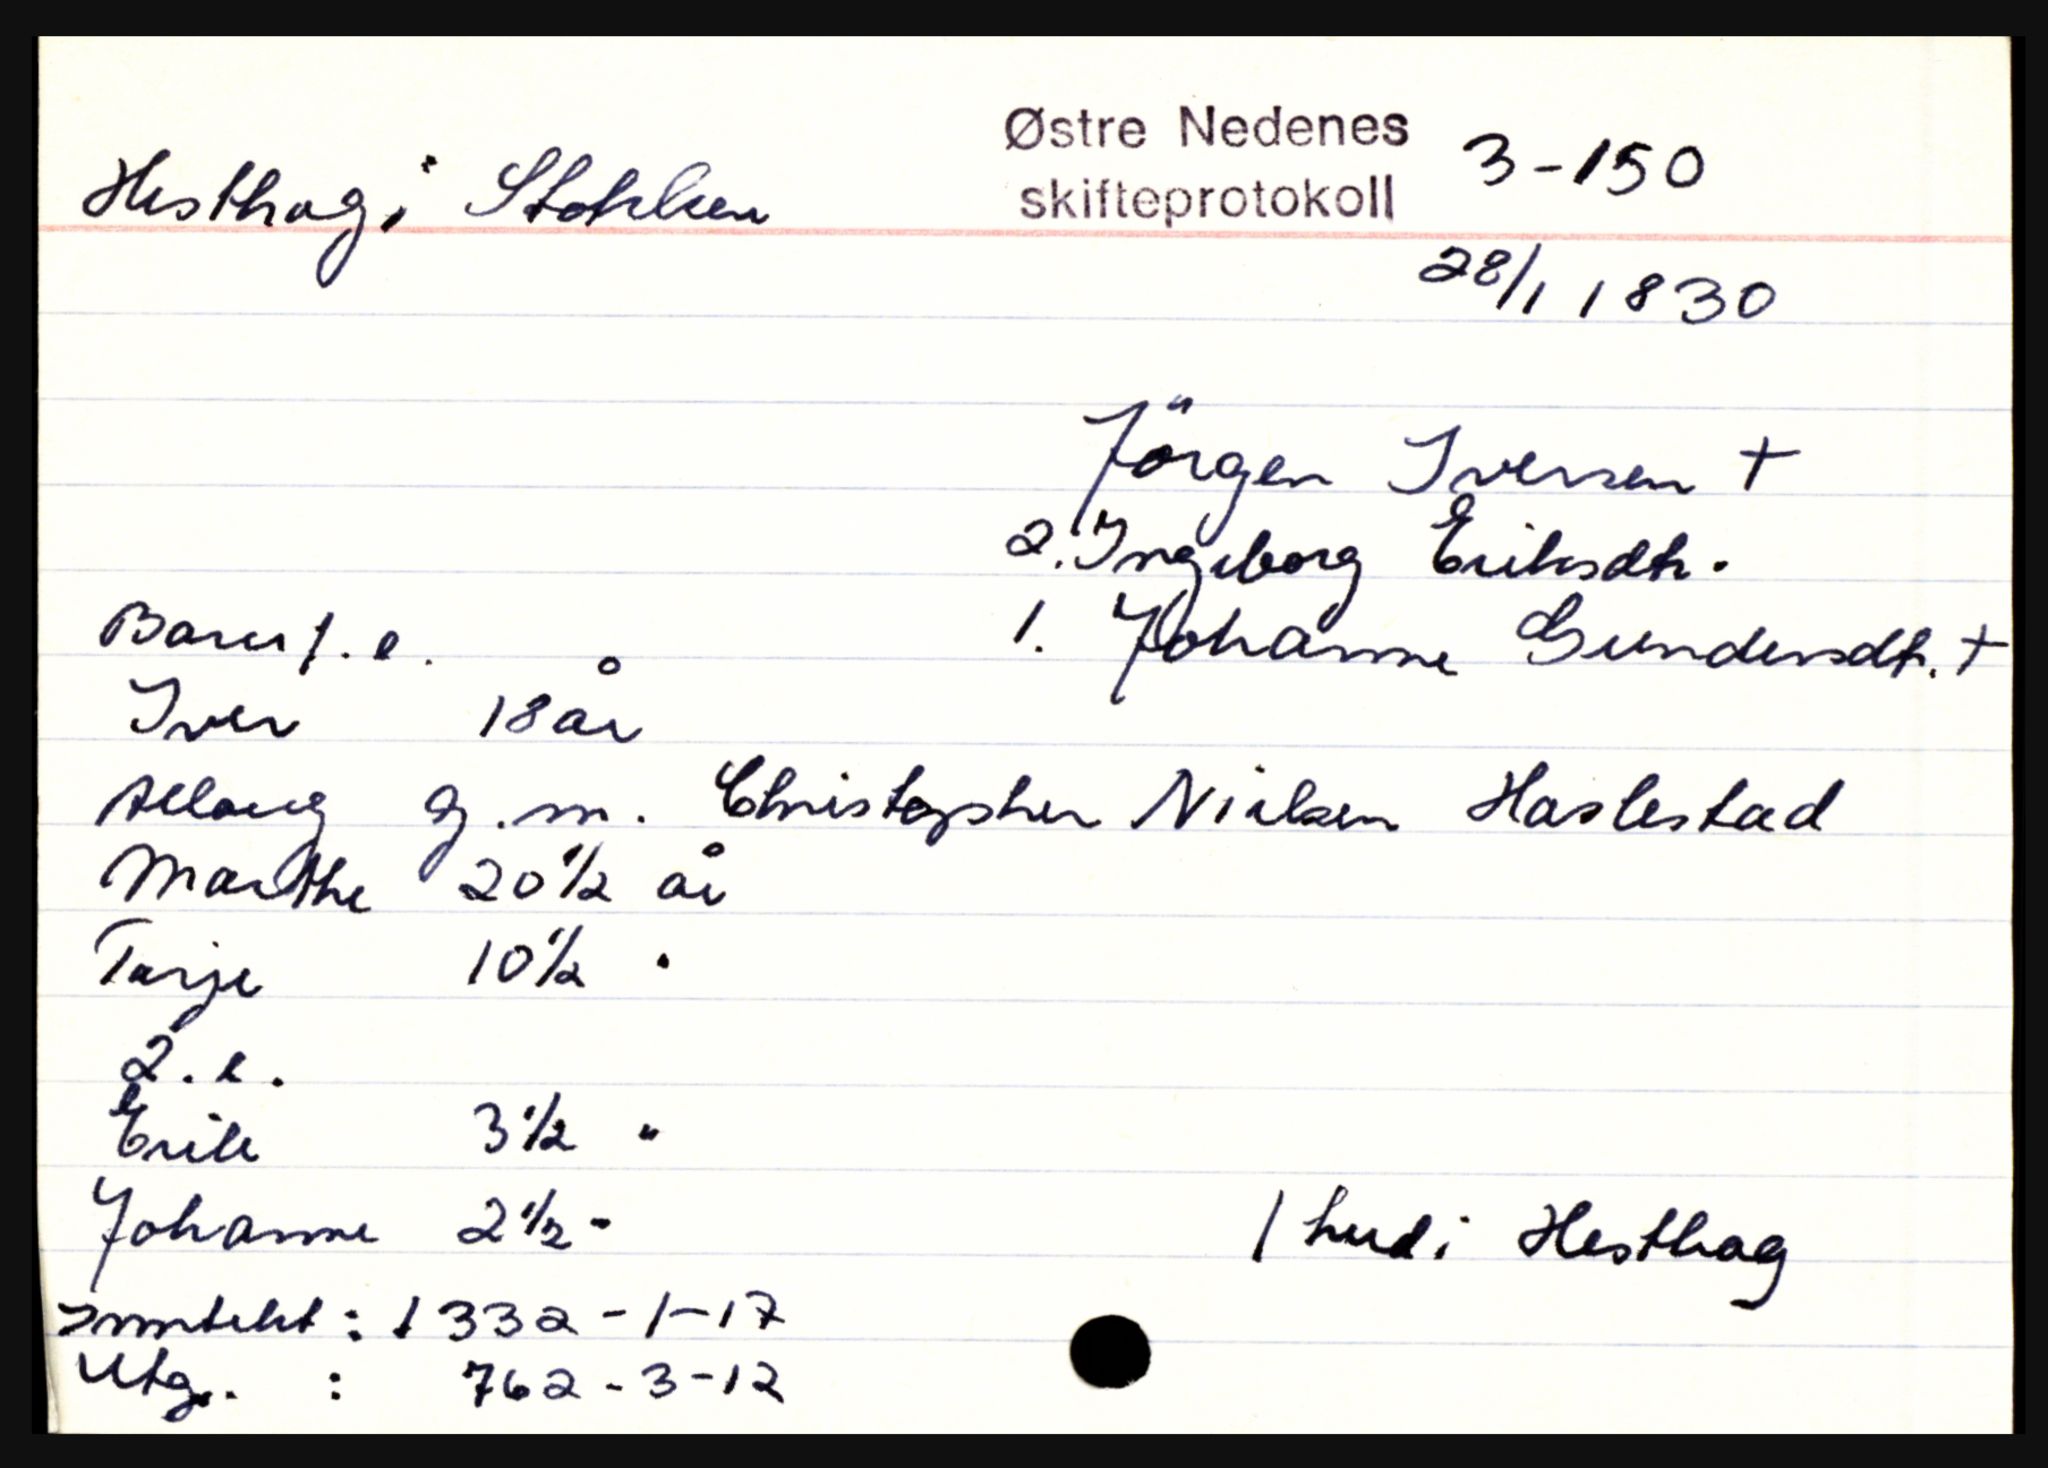 Østre Nedenes 3-150
Hesthag i Stokken skifteprotokoll
28/1 1830
Jörgen Iversen +
2. Ingeborg Eriksdtr.
Barn 1. e. 1. Johanne Gundersdtr. +
Iver 18 år
Aslaug g. m. Christopher Nielsen Haslestad
Marthe 20 1/2 år
Tarje 10 1/2 "
2. e.
Erik 3 1/2 "
Johanne 2 1/2 " 1 hud i Hesthag
Inntekt : 1332-1-17
Utg. : 762-3-12